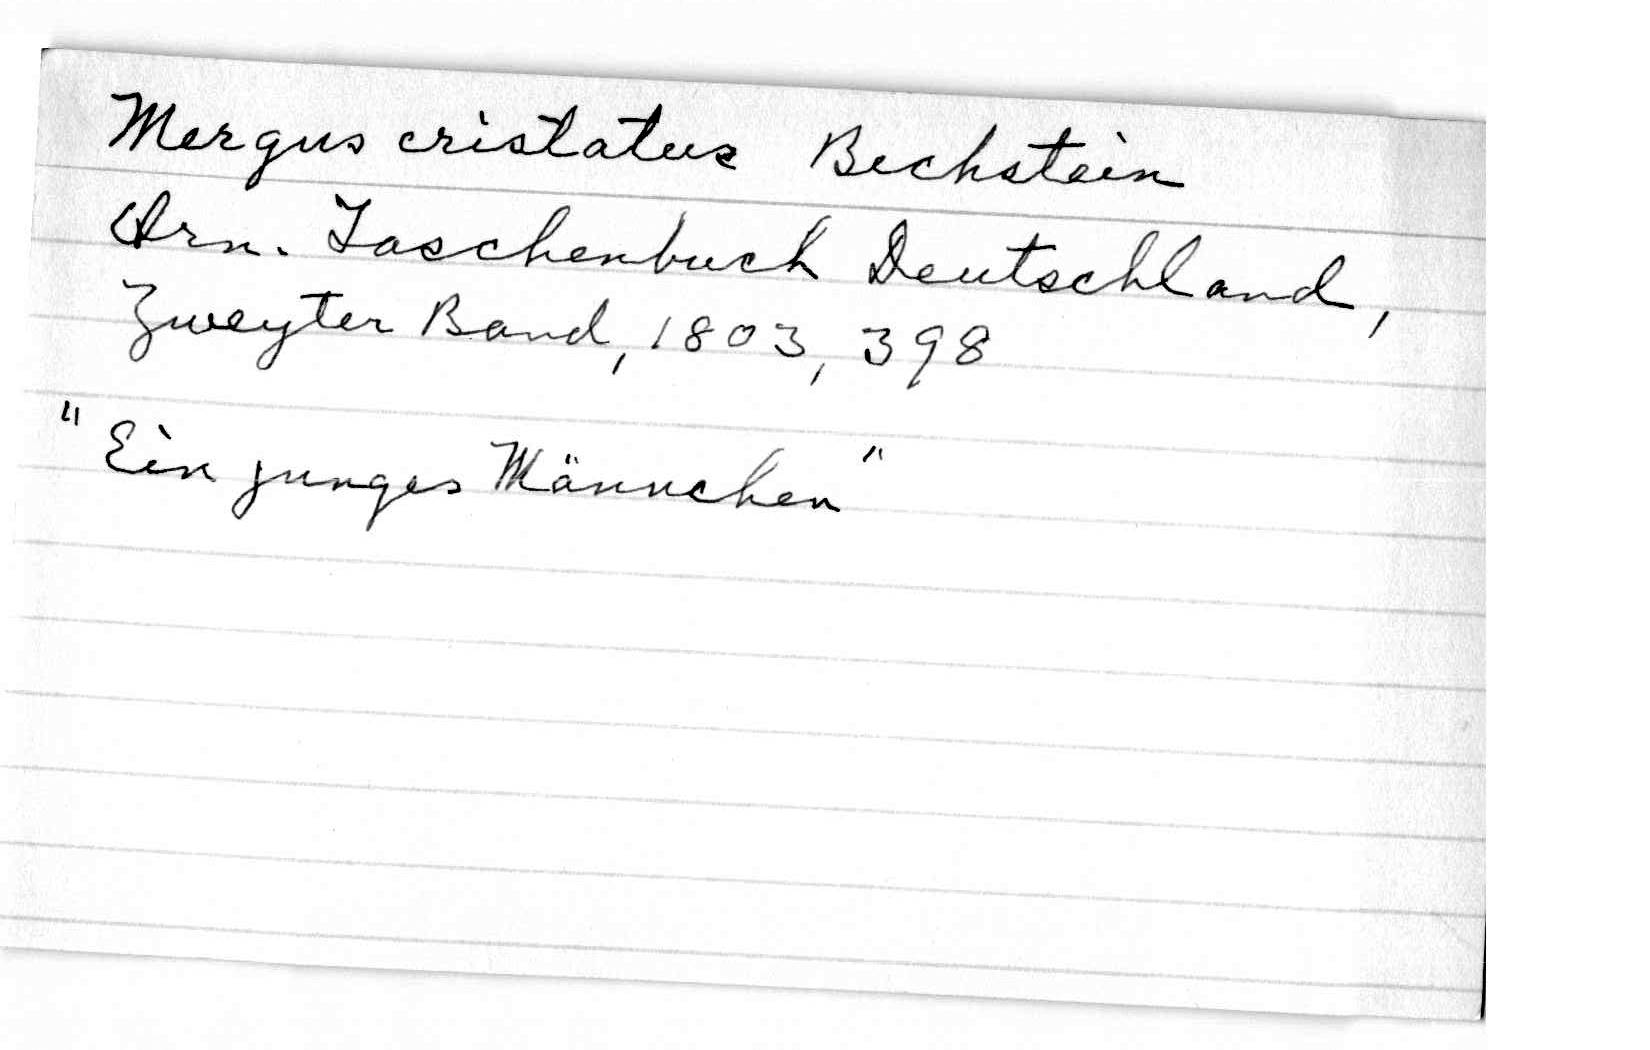 Mergus cristatus Bechstein
Orn. Taschenbuch Deutschland,
Zweyter Band, 1803, 398
"Ein junges Männchen"